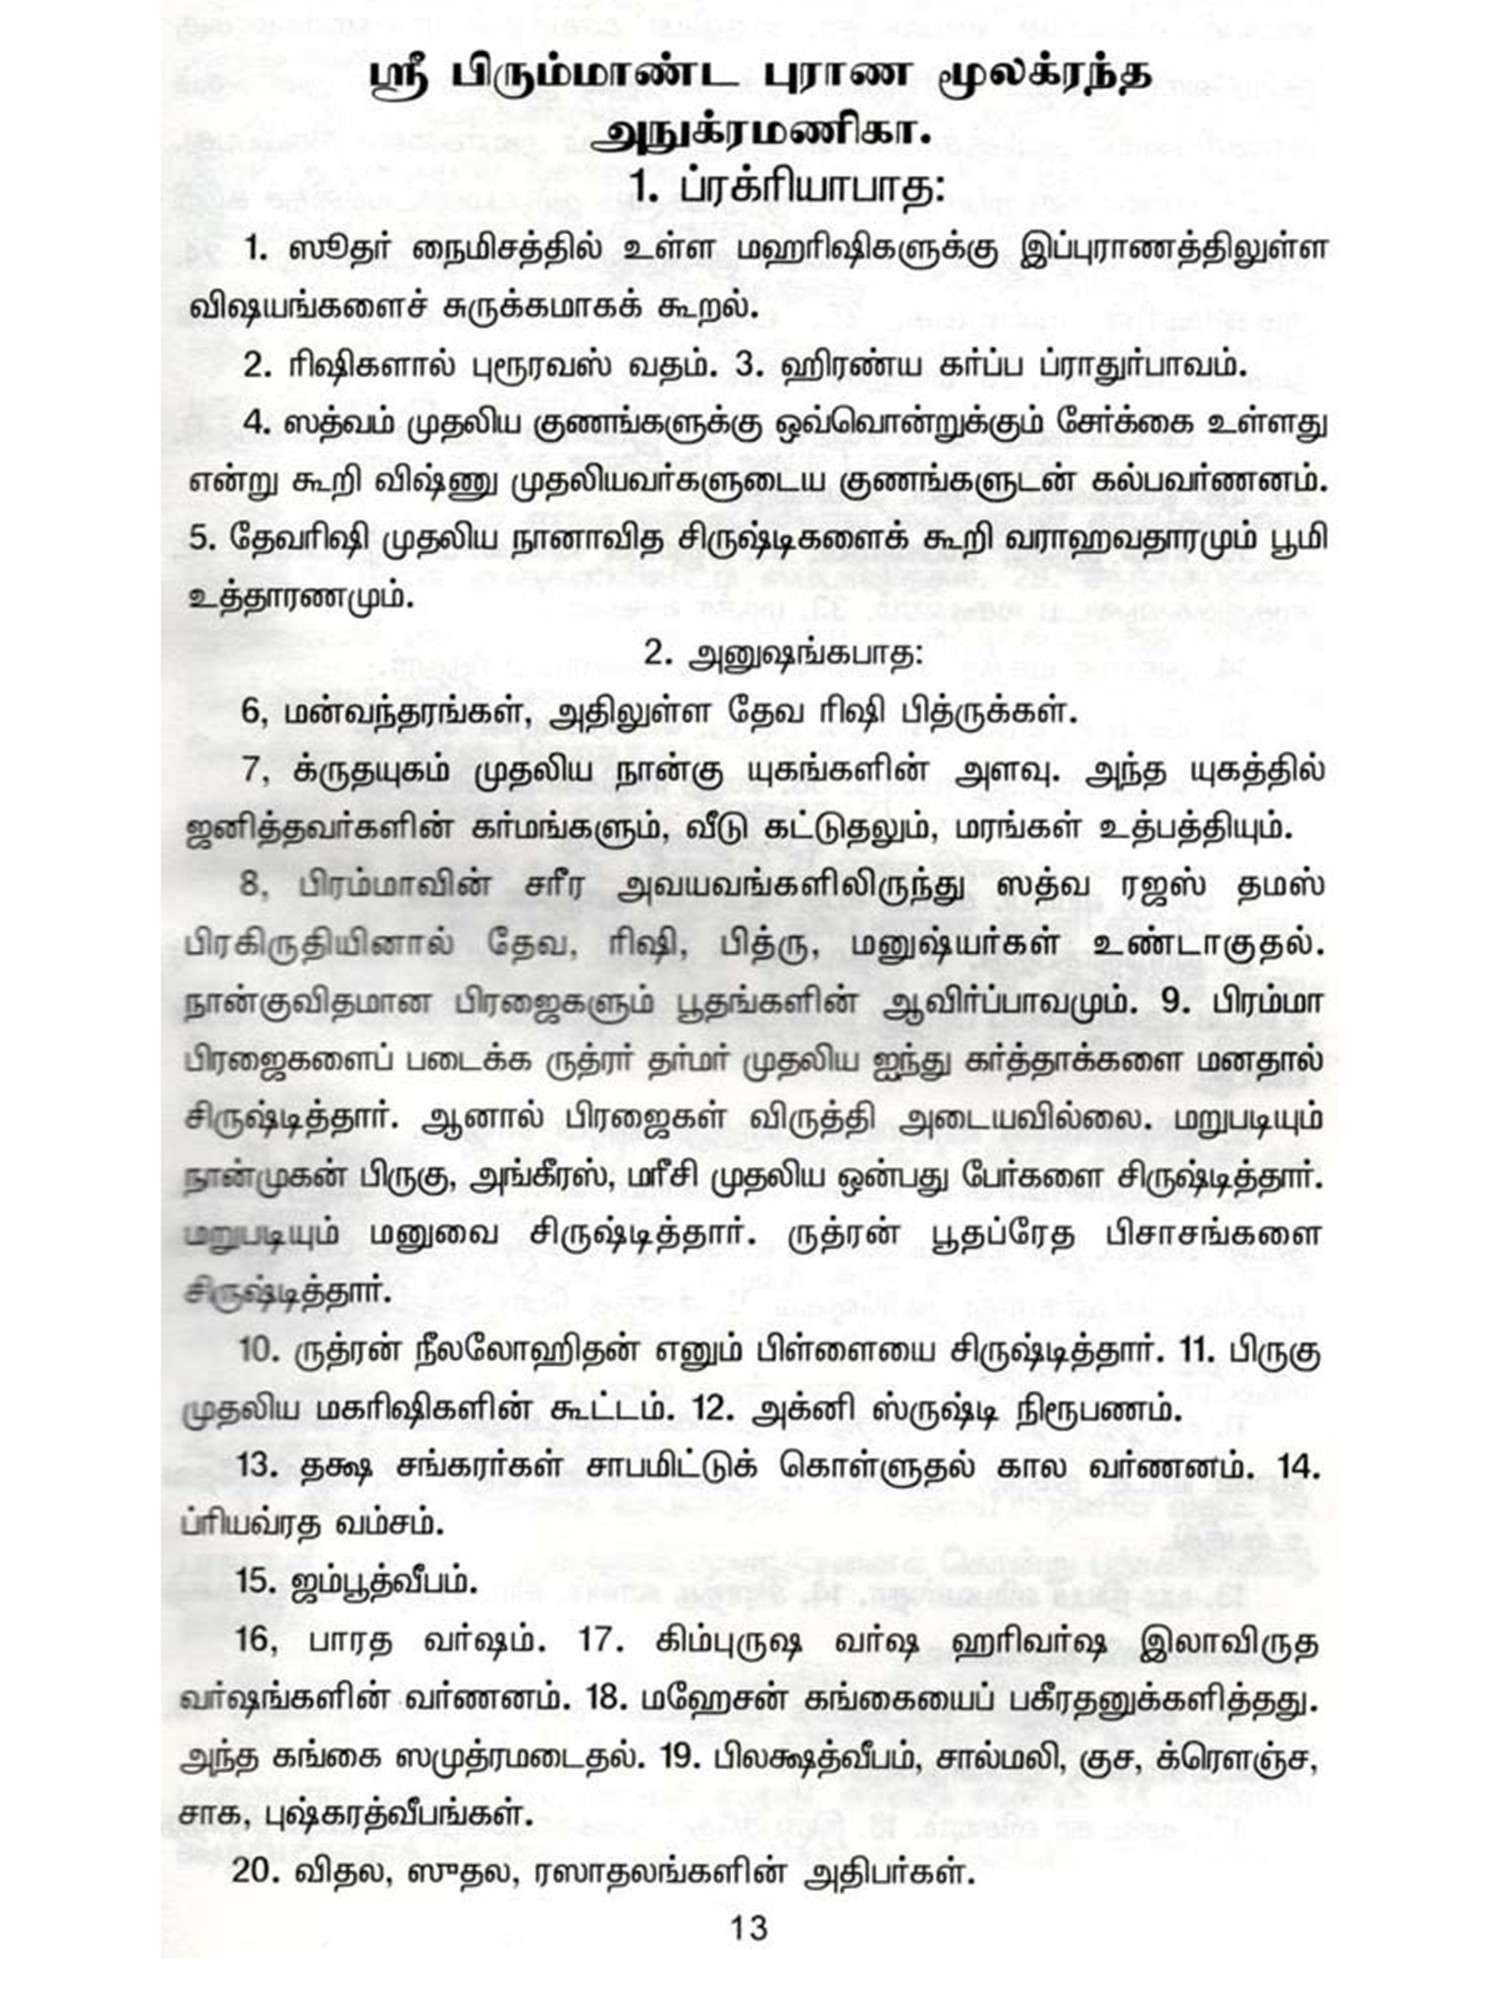 ஸ்ரீ பிரும்மாண்ட புராண மூலக்ரந்த
அநுக்ரமணிகா.
1. ப்ரக்ரியாபாத:
1. ஸூதர் நைமிசத்தில் உள்ள மஹரிஷிகளுக்கு இப்புராணத்திலுள்ள
விஷயங்களைச் சுருக்கமாகக் கூறல்.
2. ரிஷிகளால் புரூரவஸ் வதம். 3. ஹிரண்ய கர்ப்ப ப்ராதுர்பாவம்.
4. ஸத்வம் முதலிய குணங்களுக்கு ஒவ்வொன்றுக்கும் சேர்க்கை உள்ளது
என்று கூறி விஷ்ணு முதலியவர்களுடைய குணங்களுடன் கல்பவர்ணனம்.
5. தேவரிஷி முதலிய நானாவித சிருஷ்டிகளைக் கூறி வராஹவதாரமும் பூமி
உத்தாரணமும்.
2. அனுஷங்கபாத:
6, மன்வந்தரங்கள், அதிலுள்ள தேவ ரிஷி பித்ருக்கள்.
7, க்ருதயுகம் முதலிய நான்கு யுகங்களின் அளவு. அந்த யுகத்தில்
ஜனித்தவர்களின் கர்மங்களும், வீடு கட்டுதலும், மரங்கள் உத்பத்தியும்.
8, பிரம்மாவின் சரீர அவயவங்களிலிருந்து ஸத்வ ரஜஸ் தமஸ்
பிரகிருதியினால் தேவ, ரிஷி, பித்ரு, மனுஷ்யர்கள் உண்டாகுதல்.
நான்குவிதமான பிரஜைகளும் பூதங்களின் ஆவிர்ப்பாவமும். 9. பிரம்மா
பிரஜைகளைப் படைக்க ருத்ரர் தர்மர் முதலிய ஐந்து கர்த்தாக்களை மனதால்
சிருஷ்டித்தார். ஆனால் பிரஜைகள் விருத்தி அடையவில்லை. மறுபடியும்
நான்முகன் பிருகு, அங்கீரஸ், மரீசி முதலிய ஒன்பது பேர்களை சிருஷ்டித்தார்.
மறுபடியும் மனுவை சிருஷ்டித்தார். ருத்ரன் பூதப்ரேத பிசாசங்களை
சிருஷ்டித்தார்.
10. ருத்ரன் நீலலோஹிதன் எனும் பிள்ளையை சிருஷ்டித்தார். 11. பிருகு
முதலிய மகரிஷிகளின் கூட்டம். 12. அக்னி ஸ்ருஷ்டி நிரூபணம்.
13. தக்ஷ சங்கரர்கள் சாபமிட்டுக் கொள்ளுதல் கால வர்ணனம். 14.
ப்ரியவ்ரத வம்சம்.
15. ஜம்பூத்வீபம்.
16, பாரத வர்ஷம். 17. கிம்புருஷ வர்ஷ ஹரிவர்ஷ இலாவிருத
வர்ஷங்களின் வர்ணனம். 18. மஹேசன் கங்கையைப் பகீரதனுக்களித்தது.
அந்த கங்கை ஸமுத்ரமடைதல். 19. பிலக்ஷத்வீபம், சால்மலி, குச, க்ரௌஞ்ச,
சாக, புஷ்கரத்வீபங்கள்.
20. விதல, ஸுதல, ரஸாதலங்களின் அதிபர்கள்.
13